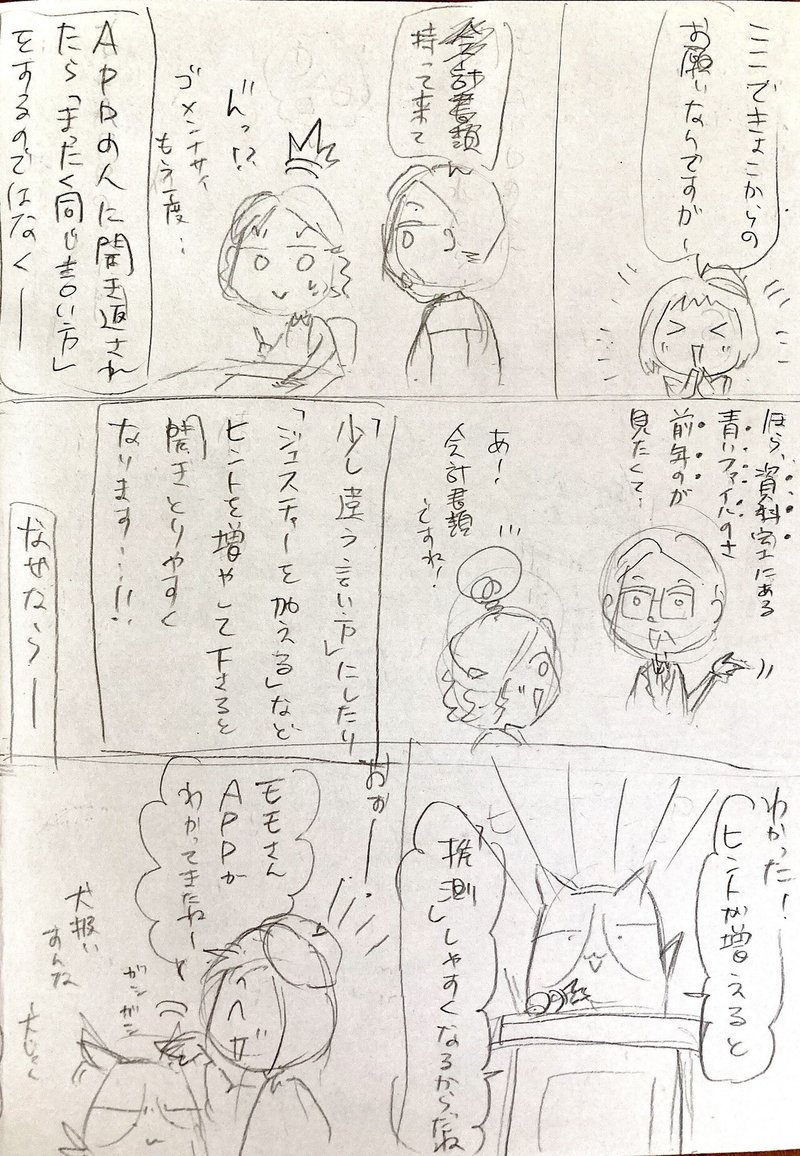 ここできょこからの
お願いなんですが〜
会計書類
持って来て
ん
んっ!?
ゴメンナサイ
もう一度…
APDの人に聞き返され
たら「まったく同じ言い方」
をするのではなく——
ほら、資料室にある
青いファイルのさ
前年のが
見たくて…
あ!
会計書類
ですね!
「少し違う言い方」にしたり
「ジェスチャーを加える」など
ヒントを増やして下さると
聞きとりやすく
なります…!!
なぜなら——
わかった!
ヒントが増えると
「推測」しやすくなるからだね
おぉ——
モモさん
APDが
わかってきたねー
犬扱い
すんな
ガシガシ